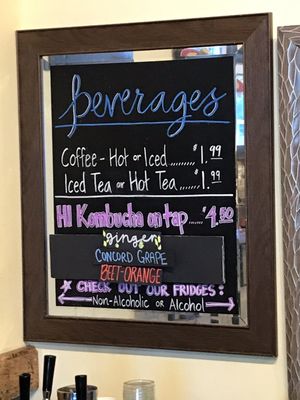 beverages
Coffee - Hot or Iced ........ $1.99
Iced Tea or Hot Tea ..... $1.99
HI Kombucha on tap .... $4.50
ginger
CONCORD GRAPE
BEET-ORANGE
☆ CHECK OUT OUR FRIDGES:
Non-Alcoholic or Alcohol